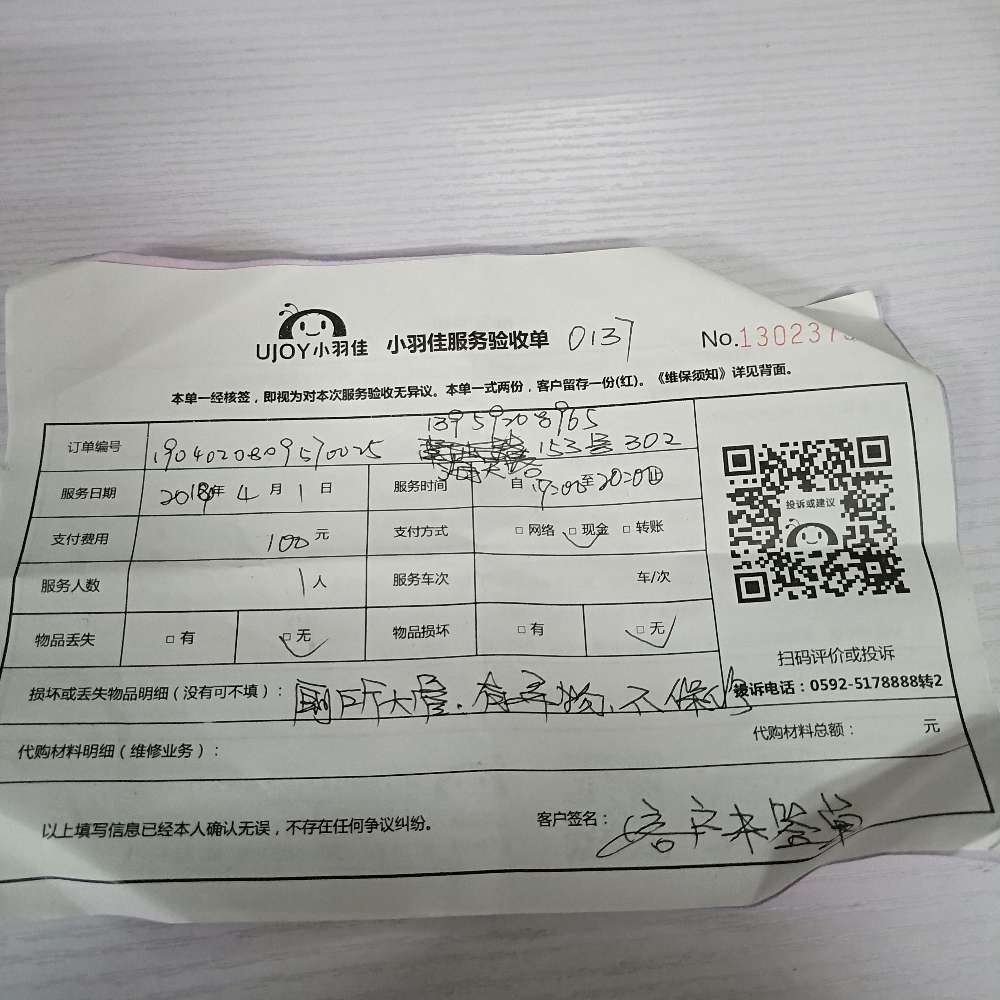 UJOY小羽佳 小羽佳服务验收单 0137 No.130237
本单一经核签，即视为对本次服务验收无异议。本单一式两份，客户留存一份(红)。《维保须知》详见背面。
13959208965
订单编号 1904020809570025 153号 302
服务日期 2018年 4 月 1 日 服务时间 自 19:00至20:20止
支付费用 100 元 支付方式 □ 网络 □ 现金 □ 转账
服务人数 1 人 服务车次 车/次
物品丢失 □ 有 □ 无 物品损坏 □ 有 □ 无
损坏或丢失物品明细（没有可不填）： 厕所大管.有异物.不保修
代购材料明细（维修业务）： 代购材料总额： 元
以上填写信息已经本人确认无误，不存在任何争议纠纷。 客户签名： 客户未签单
投诉或建议
扫码评价或投诉
投诉电话：0592-5178888转2